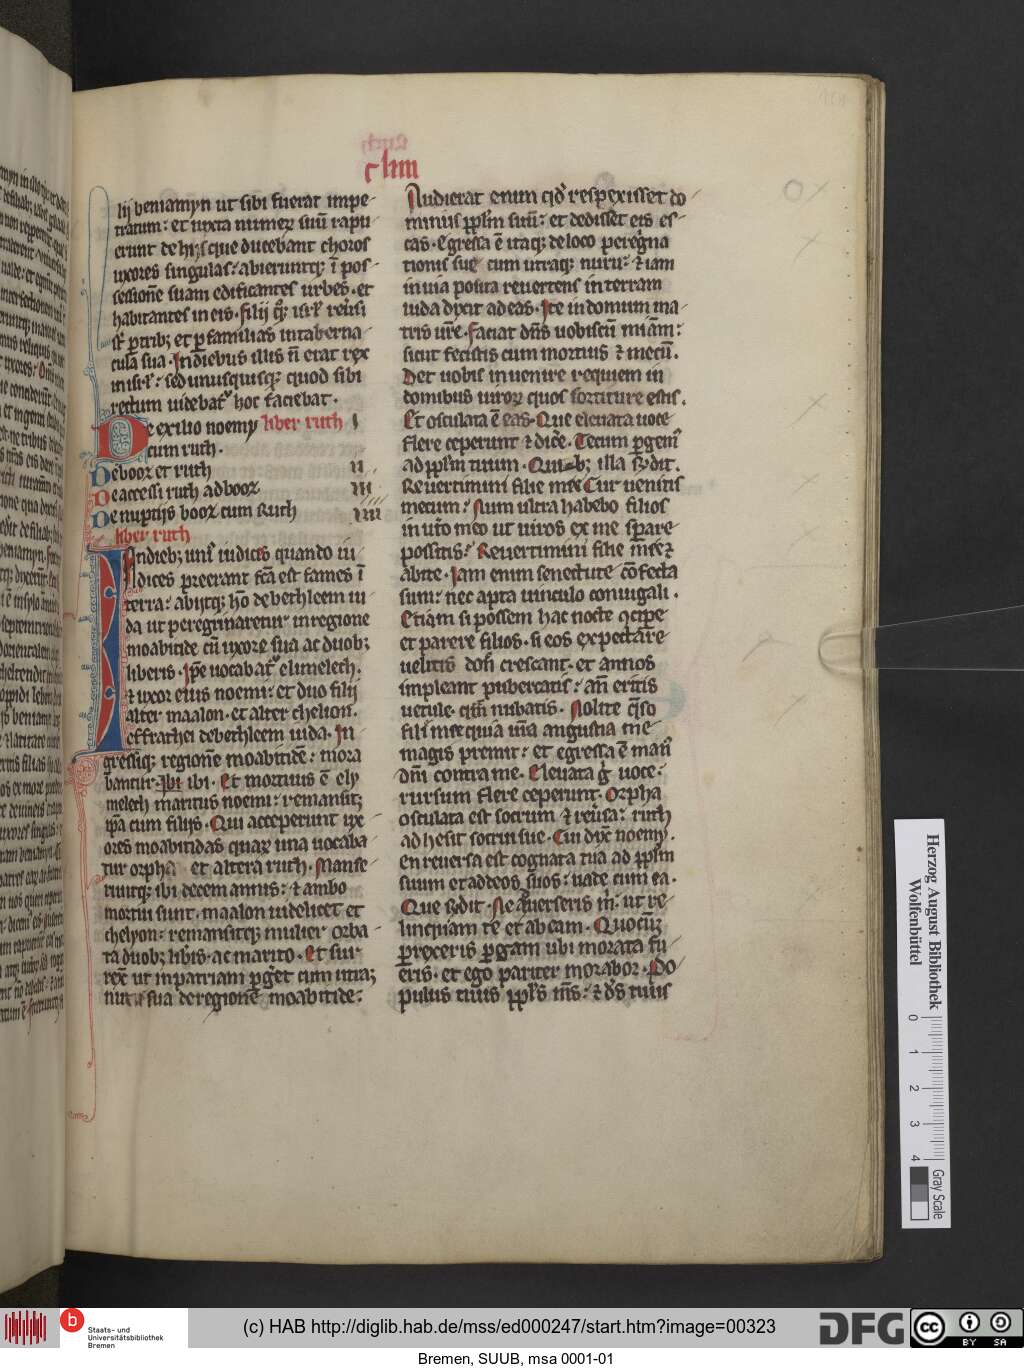 clıııı
lij beniamyn ut sibi fuerat impe-
ratum: et iuxta numerꝫ suū rapu
erunt de hiꝫ que ducebant choros
uxores singulas: abieruntqꝫ ī pos-
sessionē suam edificantes urbes. et
habitantes in eis. filij qꝫ isrł reūsi
sūt ꝑ tribꝫ et ꝑ familias in taberna-
cula sua. In diebus illis nō erat rex
in isrł: sed unusquisqꝫ quod sibi
rectum uidebat hoc faciebat.
De exilio noemy liber ruth ı
cum ruth.
De booz et ruth ıı
De accessu ruth ad booz ııı
De nuptijs booz cum Ruth ıııı
liber ruth
In diebꝫ unī iudicis quando iu-
dices preerant fcā est fames ī
terra: abijtqꝫ hō de bethleem iu-
da ut peregrinaretur in regione
moabitide cū uxore sua ac duobꝫ
liberis. Ipse uocabat elimelech.
⁊ uxor eius noemi: et duo filij
alter maalon. et alter chelion.
effrathei de bethleem iuda. In
gressiqꝫ regionē moabitidē: mora
bantur ibi ibi. Et mortuus ē ely
melech maritus noemi: remansitqꝫ
ip̄a cum filijs. Qui acceperunt ux-
ores moabitidas quaꝝ una uocaba
tur orpha et altera ruth. Manse-
runtqꝫ ibi decem annis: ⁊ ambo
mortui sunt. maalon uidelicet et
chelyon: remansitqꝫ mulier orba-
ta duobꝫ libīs. ac marito. Et sur-
rexē ut in patriam ꝑget cum utraqꝫ
nuru sua de regionē moabitide:
Audierat enim qd̄ respexisset do-
minus ppl̄m suū: et dedisset eis es-
cas. Egressa ē itaqꝫ de loco peregrina
tionis sue cum utraqꝫ nuru: ⁊ iam
in uia posita reuertens in terram
iuda dixit ad eas. Ite in domum ma-
tris ur̄e. Faciat dn̄s uobiscū mi̅am:
sicut fecistis cum mortuis ⁊ mecū.
Det uobis inuenire requiem in
domibus uiroꝝ quos sortiture estis.
Et osculata ē eas. Que eleuata uoce
flere ceperunt ⁊ dicē. Tecum pergem̄
ad ppl̄m tuum. Quibꝫ illa rn̄dit.
Reuertimini filie mee Cur uenitis
mecum: Num ultra habebo filios
in utō meo ut uiros ex me sperare
possitis: Reuertimini filie mee ⁊
abite. Iam enim senectute cōfecta
sum: nec apta uinculo coniugali.
Etiam si possem hac nocte cōcipe
et parere filios. si eos expectare
uelitis don̄ crescant. et annos
impleant pubertatis: an̄ eritis
uetule. qm̄ nubatis. Nolite q̄so
filī mee quia ur̄a angustia me-
magis premit: et egressa ē man̄
dn̄i contra me. Eleuata g̊ uoce:
rursum flere ceperunt. Orpha
osculata est socrum ⁊ reūsa: ruth
adhesit socrui sue. Cui dix̄ noemy.
en reuersa est cognata tua ad ppl̄m
suum et ad deos suos: uade cum ea.
Que rn̄dit. Ne aduerseris m̄: ut re-
linquam te et abeam. Quocūqꝫ
ꝑrexeris ꝑgam ubi morata fu-
eris. et ego pariter morabor. Po-
pulus tuus ppl̄s m̄s: ⁊ ds̄ tuus
Herzog August Bibliothek
Wolfenbüttel
0 1 2 3 4
Gray Scale
b
Staats- und
Universitätsbibliothek
Bremen
(c) HAB http://diglib.hab.de/mss/ed000247/start.htm?image=00323
DFG
cc BY SA
Bremen, SUUB, msa 0001-01